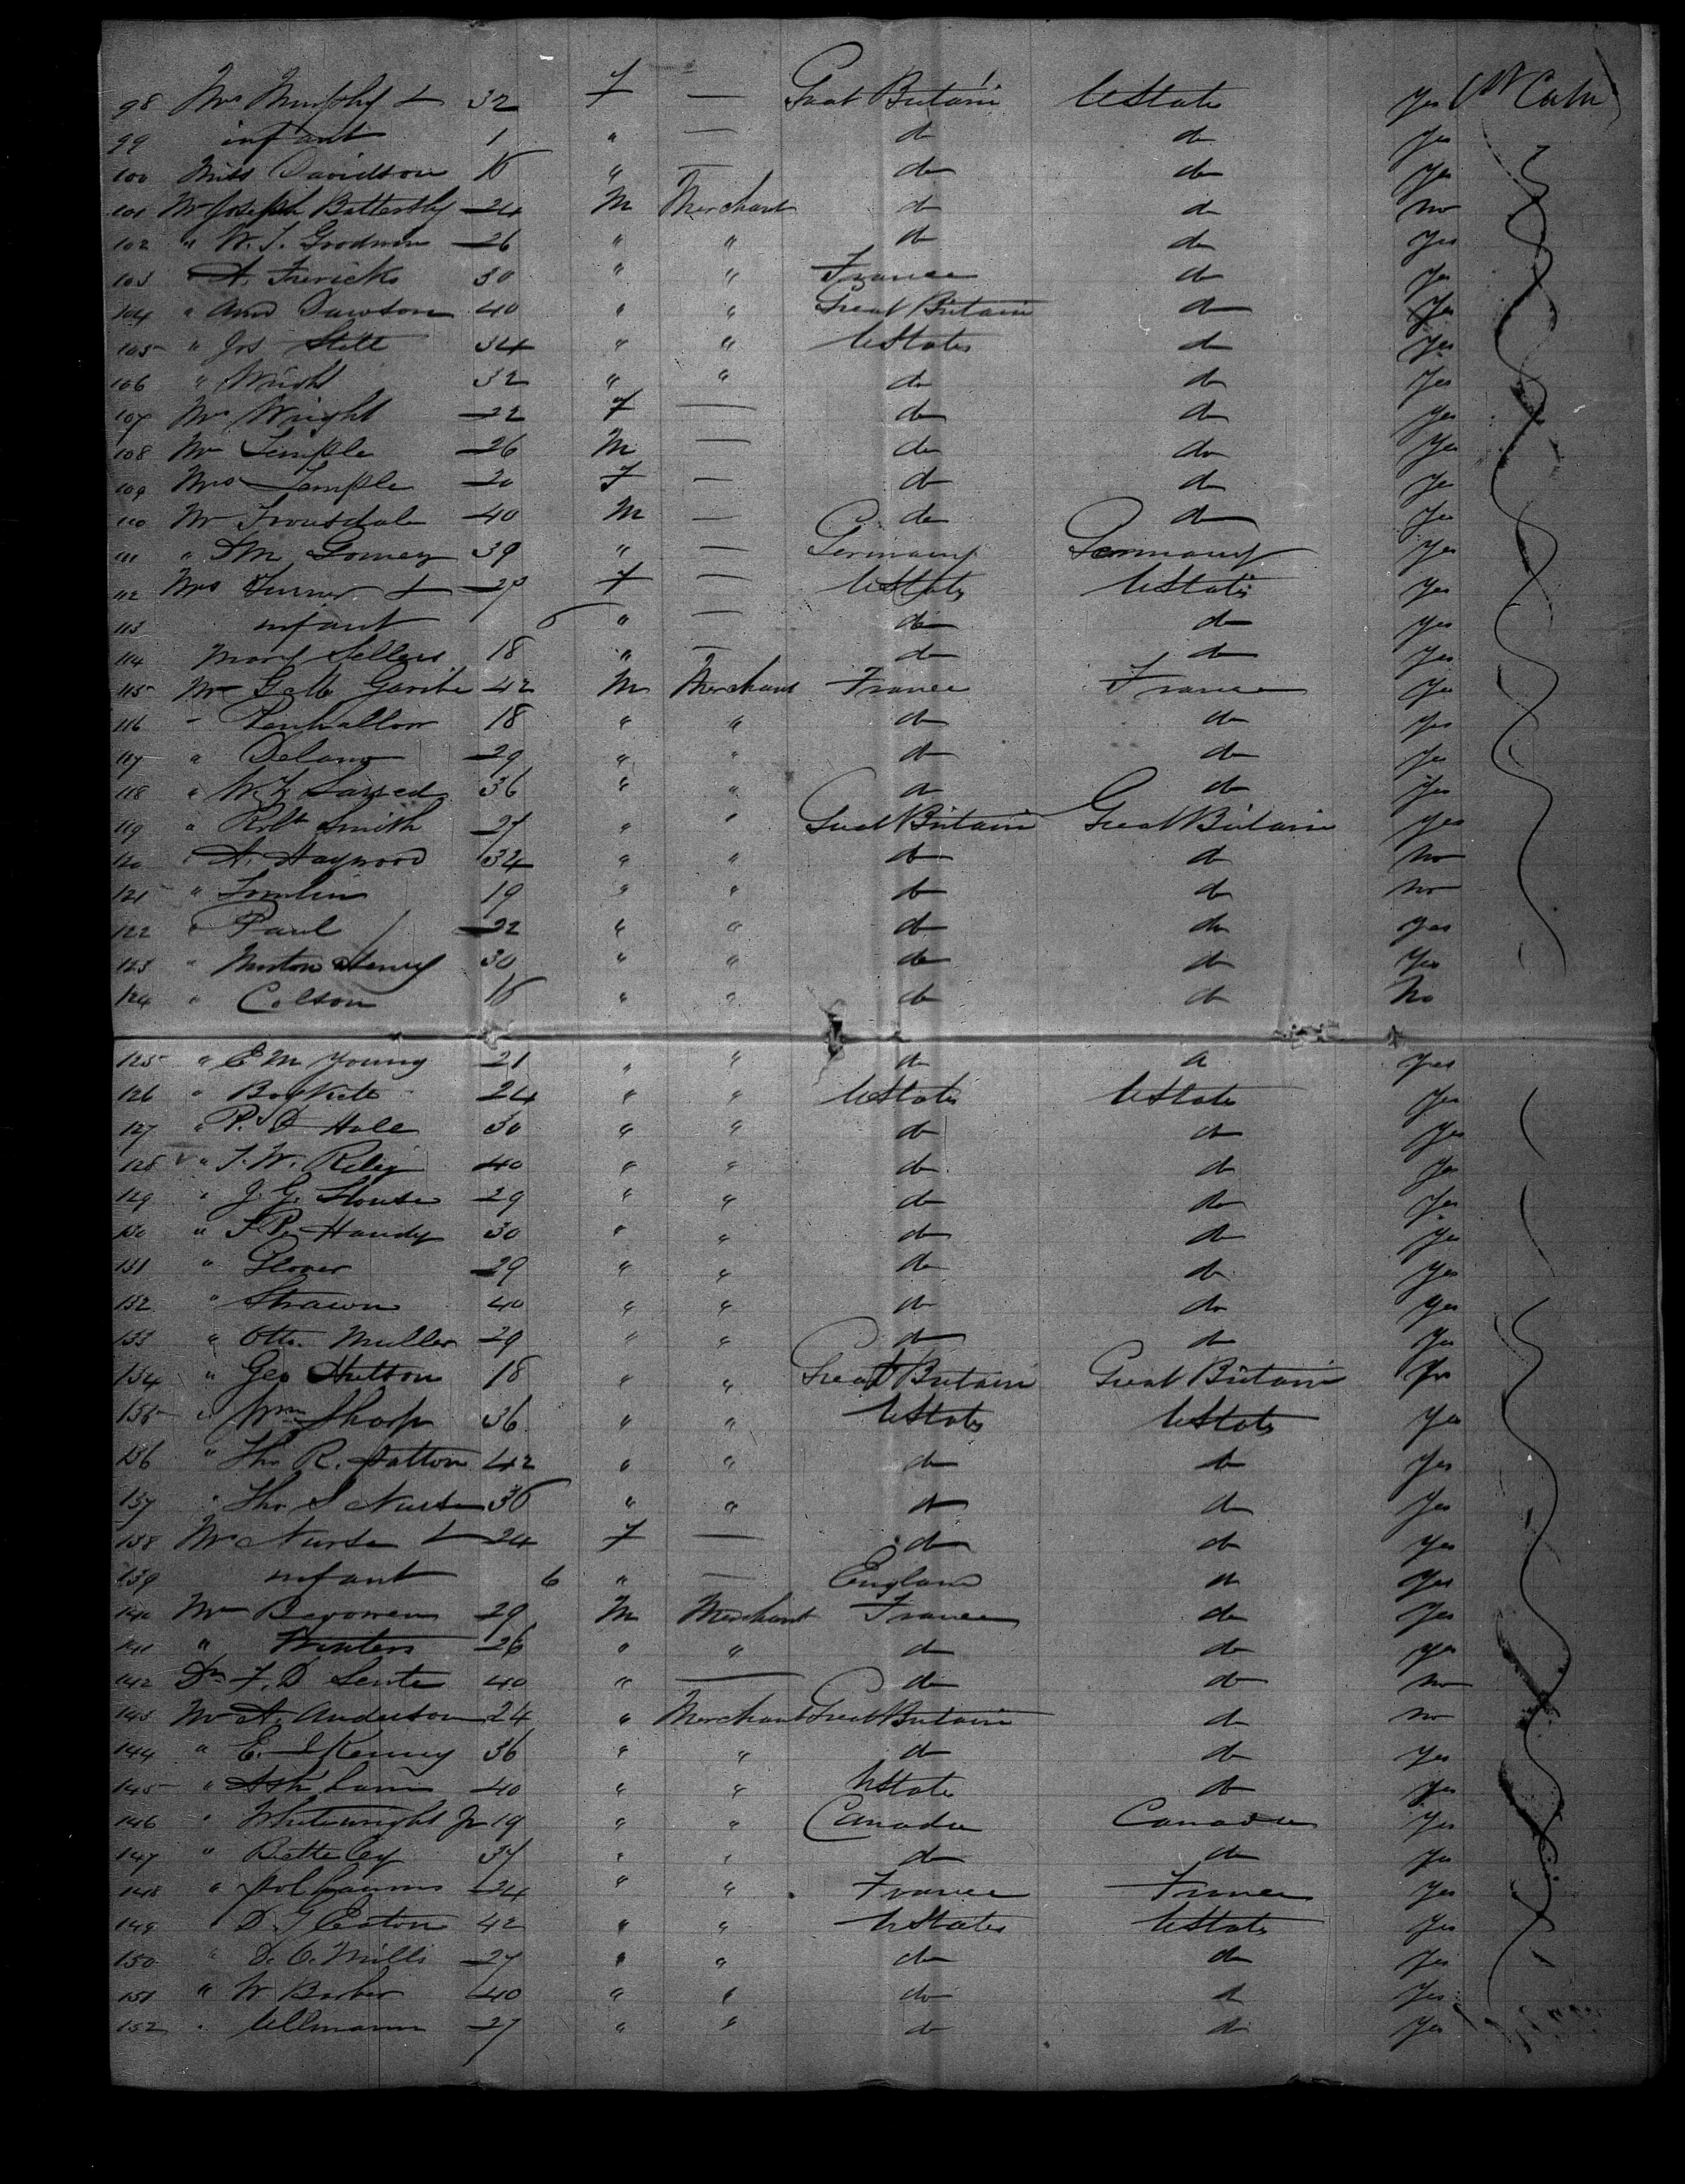 98 Mrs Murphy & 32 F — Great Britain UStates Yes
99 infant 1 " — do do Yes
100 Miss Davidson 16 " — do do Yes
101 Mr Joseph Battersby 24 M Merchant do do no
102 " W. T. Goodwin 26 " " do do Yes
103 A. Frericks 30 " " France do Yes
104 " And Dawson 40 " " Great Britain do Yes
105 " Jos Stett 34 " " UStates do Yes
106 " Wright 32 " " do do Yes
107 Mrs Wright 22 F — do do Yes
108 Mr Temple 26 M — do do Yes
109 Mrs Temple 20 F — do do Yes
110 Mr Trousdale 40 M — do do Yes
111 " S M Gomez 39 " — Germany Germany Yes
112 Mrs Turner & F — UStates UStates Yes
113 infant 6 " — do do Yes
114 Mary Sellers 18 " — do do Yes
115 Mr Garibe 42 M Merchant France France Yes
116 " Penhallow 18 " " do do Yes
117 " Delano 29 " " do do Yes
118 " W. 36 " " do do Yes
119 " Robt Smith 27 " " Great Britain Great Britain Yes
120 " A. Haywood 34 " " do do no
121 " Tomlin 19 " " do do no
122 " Paul 22 " " do do Yes
123 " Henry 30 " " do do Yes
124 " Colson 16 " " do do No
125 " E M Young 21 " " do do Yes
126 " 24 " " UStates UStates Yes
127 " P. D Hall 30 " " do do Yes
128 " T. W. Riley 40 " " do do Yes
129 " J. G. 29 " " do do Yes
130 " T. P. Handy 30 " " do do Yes
131 " Glover 29 " " do do Yes
132 " Strawn 40 " " do do Yes
133 " Otto Muller 29 " " do do Yes
134 " Geo Hutton 18 " " Great Britain Great Britain Yes
135 " Wm Sharp 36 " " UStates UStates Yes
136 " Tho R. Patton 42 " " do do Yes
137 " Tho S Nurse 36 " " do do Yes
138 Mrs Nurse & 24 F — do do Yes
139 infant 6 " — England do Yes
140 Mr 29 M Merchant France do Yes
141 " Winters 26 " " do do Yes
142 Dr F. D Lente 40 " — do do no
143 Mr A. Anderson 24 " Merchant Great Britain do no
144 " E. Kenny 36 " " do do Yes
145 " 40 " " UStates do Yes
146 " Whitewright Jr 19 " " Canada Canada Yes
147 " Betteley 37 " " do do Yes
148 " 24 " " France France Yes
149 " D. G Eaton 42 " " UStates UStates Yes
150 " D. O. Mills 27 " " do do Yes
151 " W Barber 40 " " do do Yes
152 " Ullmann 27 " " do do Yes